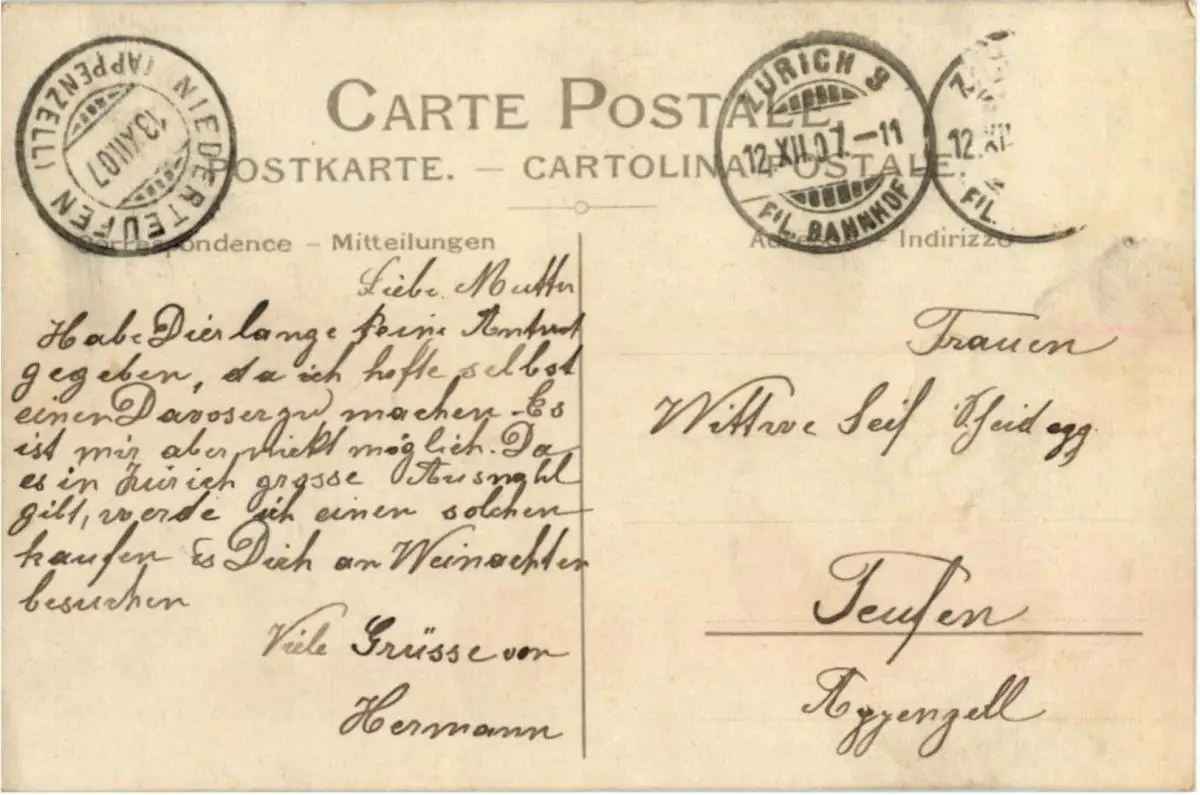 NIEDERTEUFEN (APPENZELL)
13.XII.07
ZÜRICH 8
12.XII.07.-11
FIL. BAHNHOF
12.XII
FIL.
CARTE POSTALE
POSTKARTE. – CARTOLINA POSTALE.
Correspondence – Mitteilungen
Indirizzo
Liebe Mutter
Habe Dier lange keine Antwort
gegeben, da ich hofte selbst
einen Davoser zu machen. Es
ist mir aber nicht möglich. Da
es in Zürich grosse Auswahl
gibt, werde ich einen solchen
kaufen & Dich an Weinachten
besuchen
Viele Grüsse von
Hermann
Frauen
Wittwe Seif Scheidegg
Teufen
Appenzell